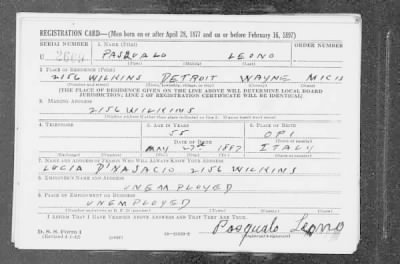 REGISTRATION CARD—(Men born on or after April 28, 1877 and on or before February 16, 1897)
SERIAL NUMBER 1. NAME (Print) ORDER NUMBER
U PASQUALO LEONO
(First) (Middle) (Last)
2. PLACE OF RESIDENCE (Print)
2156 WILKINS DETROIT WAYNE MICH
(Number and street) (Town, township, village, or city) (County) (State)
[THE PLACE OF RESIDENCE GIVEN ON THE LINE ABOVE WILL DETERMINE LOCAL BOARD
JURISDICTION; LINE 2 OF REGISTRATION CERTIFICATE WILL BE IDENTICAL]
3. MAILING ADDRESS
2156 WILKINS
[Mailing address if other than place indicated on line 2. If same insert word same]
4. TELEPHONE 5. AGE IN YEARS 6. PLACE OF BIRTH
55 OPI
DATE OF BIRTH (Town or county)
MAY 1887 ITALY
(Mo.) (Day) (Yr.) (State or country)
7. NAME AND ADDRESS OF PERSON WHO WILL ALWAYS KNOW YOUR ADDRESS
LUCIA 2156 WILKINS
8. EMPLOYER'S NAME AND ADDRESS
UNEMPLOYED
9. PLACE OF EMPLOYMENT OR BUSINESS
UNEMPLOYED
(Number and street or R. F. D. number) (Town) (County) (State)
I AFFIRM THAT I HAVE VERIFIED ABOVE ANSWERS AND THAT THEY ARE TRUE.
D. S. S. Form 1
Pasqualo Leono